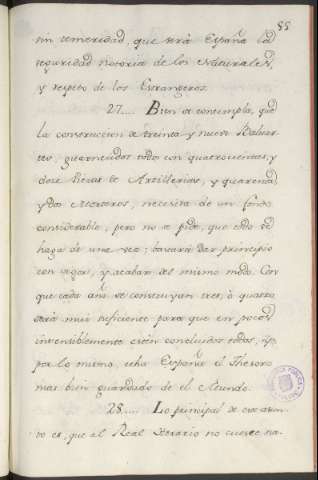 85
sin temeridad, que será España la
seguridad notoria de los Naturales,
y respeto de los Estrangeros.
27.... Bien se contempla, que
la construccion de treinta y nueve Baluar
tes, guarnecidos todos con quatrocientas, y
doze Piezas de Artilleria, y quarenta,
y dos Morteros, necesita de un fondo
considerable, pero no se pide, que todo se
haga de una vez; bastará dar principio
con vigor, y acabar del mismo modo. Con
que cada año se construyan tres, ò quatro
será mui suficiente para que en pocos
insensiblemente estèn concluidos todos, y
por lo mismo, será España el Thesoro
mas bien guardado de el Mundo.
28.... Lo principal de este asun-
to es, que al Real Herario no cueste na-